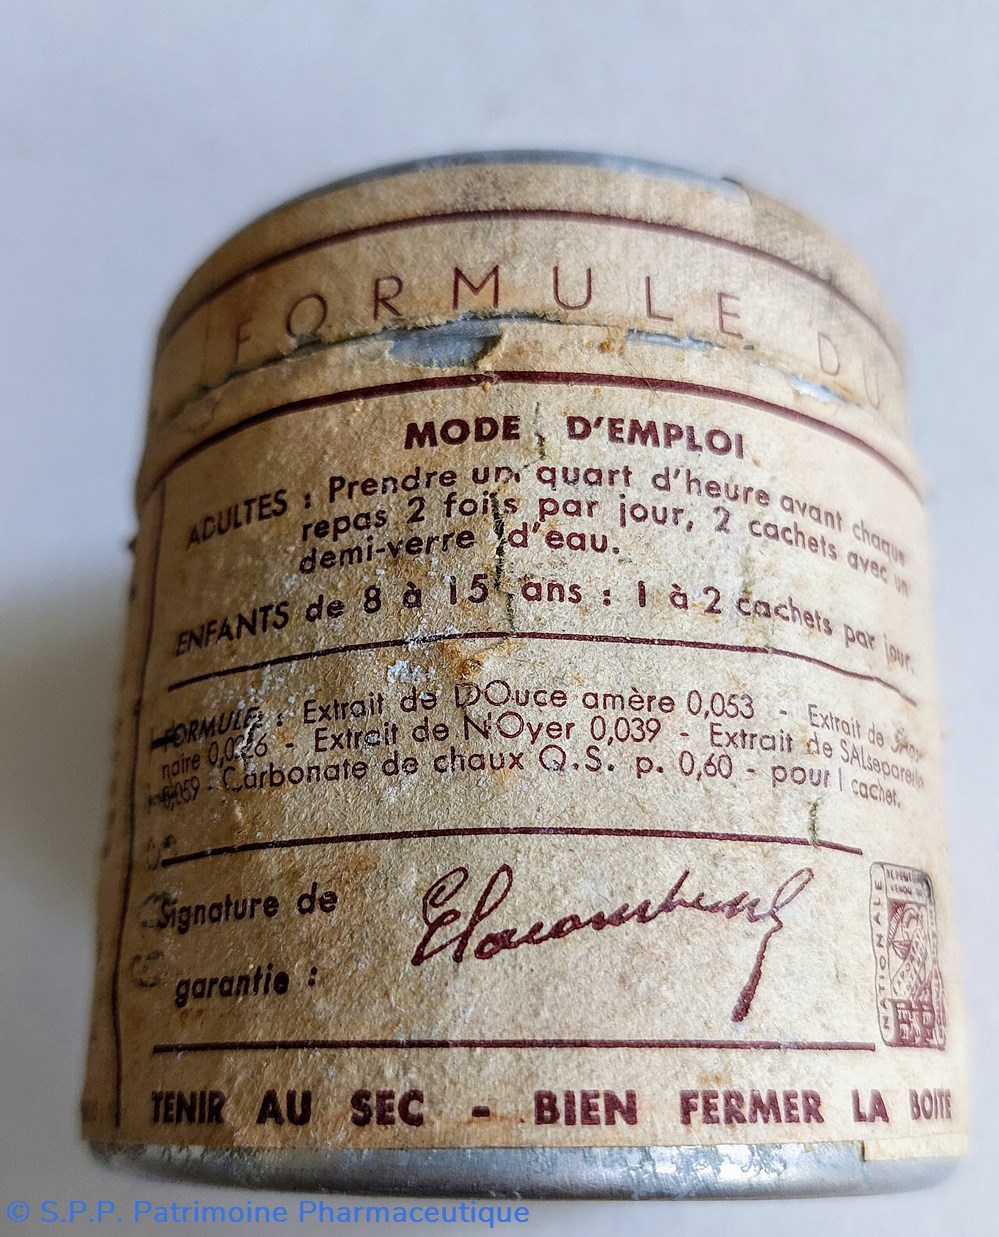 FORMULE DU
MODE D'EMPLOI
ADULTES : Prendre un quart d'heure avant chaque
repas 2 fois par jour, 2 cachets avec un
demi-verre d'eau.
ENFANTS de 8 à 15 ans : 1 à 2 cachets par jour.
FORMULE : Extrait de DOuce amère 0,053 - Extrait de
naire 0,026 - Extrait de NOyer 0,039 - Extrait de SALsepareille
0,059 - Carbonate de chaux Q.S. p. 0,60 - pour 1 cachet.
Signature de
garantie :
NATIONALE
TENIR AU SEC - BIEN FERMER LA BOITE
© S.P.P. Patrimoine Pharmaceutique